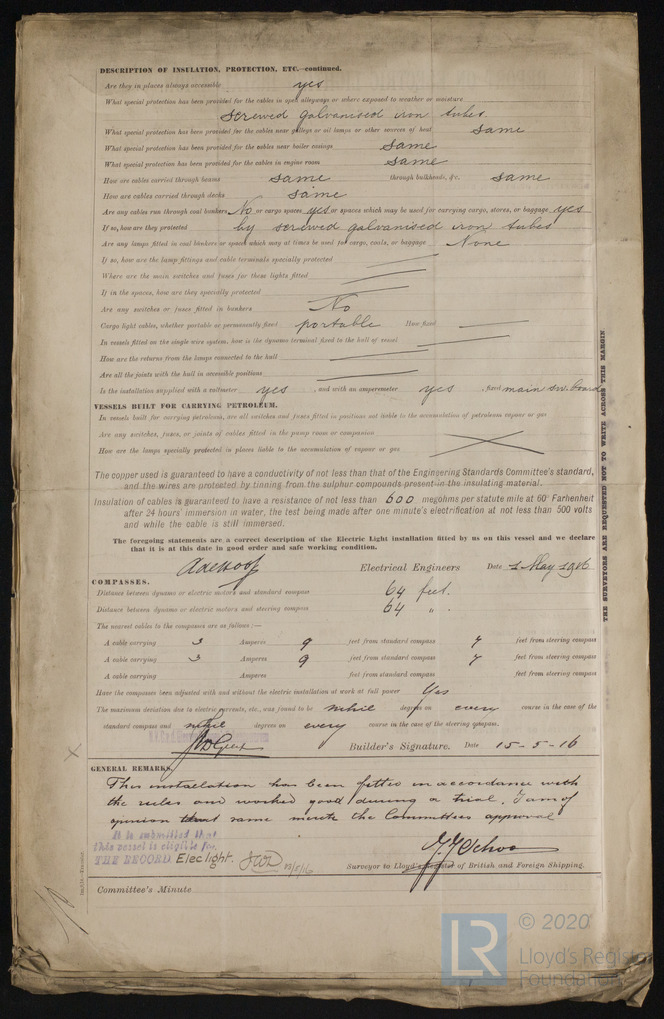 DESCRIPTION OF INSULATION, PROTECTION, ETC.—continued.
Are they in places always accessible yes
What special protection has been provided for the cables in open alleyways or where exposed to weather or moisture
screwed galvanised iron tubes.
What special protection has been provided for the cables near galleys or oil lamps or other sources of heat same
What special protection has been provided for the cables near boiler casings same
What special protection has been provided for the cables in engine room same
How are cables carried through beams same through bulkheads, &c. same
How are cables carried through decks same
Are any cables run through coal bunkers No or cargo spaces yes or spaces which may be used for carrying cargo, stores, or baggage yes
If so, how are they protected by screwed galvanised iron tubes
Are any lamps fitted in coal bunkers or spaces which may at times be used for cargo, coals, or baggage None
If so, how are the lamp fittings and cable terminals specially protected
Where are the main switches and fuses for these lights fitted
If in the spaces, how are they specially protected
Are any switches or fuses fitted in bunkers No
Cargo light cables, whether portable or permanently fixed portable How fixed
In vessels fitted on the single wire system, how is the dynamo terminal fixed to the hull of vessel
How are the returns from the lamps connected to the hull
Are all the joints with the hull in accessible positions
Is the installation supplied with a voltmeter yes , and with an amperemeter yes , fixed main sw. board
VESSELS BUILT FOR CARRYING PETROLEUM.
In vessels built for carrying petroleum, are all switches and fuses fitted in positions not liable to the accumulation of petroleum vapour or gas
Are any switches, fuses, or joints of cables fitted in the pump room or companion
How are the lamps specially protected in places liable to the accumulation of vapour or gas
The copper used is guaranteed to have a conductivity of not less than that of the Engineering Standards Committee's standard,
and the wires are protected by tinning from the sulphur compounds present in the insulating material.
Insulation of cables is guaranteed to have a resistance of not less than 600 megohms per statute mile at 60° Farhenheit
after 24 hours' immersion in water, the test being made after one minute's electrification at not less than 500 volts
and while the cable is still immersed.
The foregoing statements are a correct description of the Electric Light installation fitted by us on this vessel and we declare
that it is at this date in good order and safe working condition.
Electrical Engineers Date 1 May 1916
COMPASSES.
Distance between dynamo or electric motors and standard compass 64 feet.
Distance between dynamo or electric motors and steering compass 64 "
The nearest cables to the compasses are as follows:—
A cable carrying 3 Amperes 9 feet from standard compass 7 feet from steering compass
A cable carrying 3 Amperes 9 feet from standard compass 7 feet from steering compass
A cable carrying Amperes feet from standard compass feet from steering compass
Have the compasses been adjusted with and without the electric installation at work at full power Yes
The maximum deviation due to electric currents, etc., was found to be degrees on every course in the case of the
standard compass and degrees on every course in the case of the steering compass.
Builder's Signature. Date 15-5-16
GENERAL REMARKS.
This installation has been fitted in accordance with
the rules and worked good during a trial. I am of
opinion that same merits the Committees approval
It is submitted that
this vessel is eligible for
THE RECORD. Elec light. 18/5/16
Surveyor to Lloyd's Register of British and Foreign Shipping.
Committee's Minute
THE SURVEYORS ARE REQUESTED NOT TO WRITE ACROSS THIS MARGIN
LR
© 2020
Lloyd's Register
Foundation